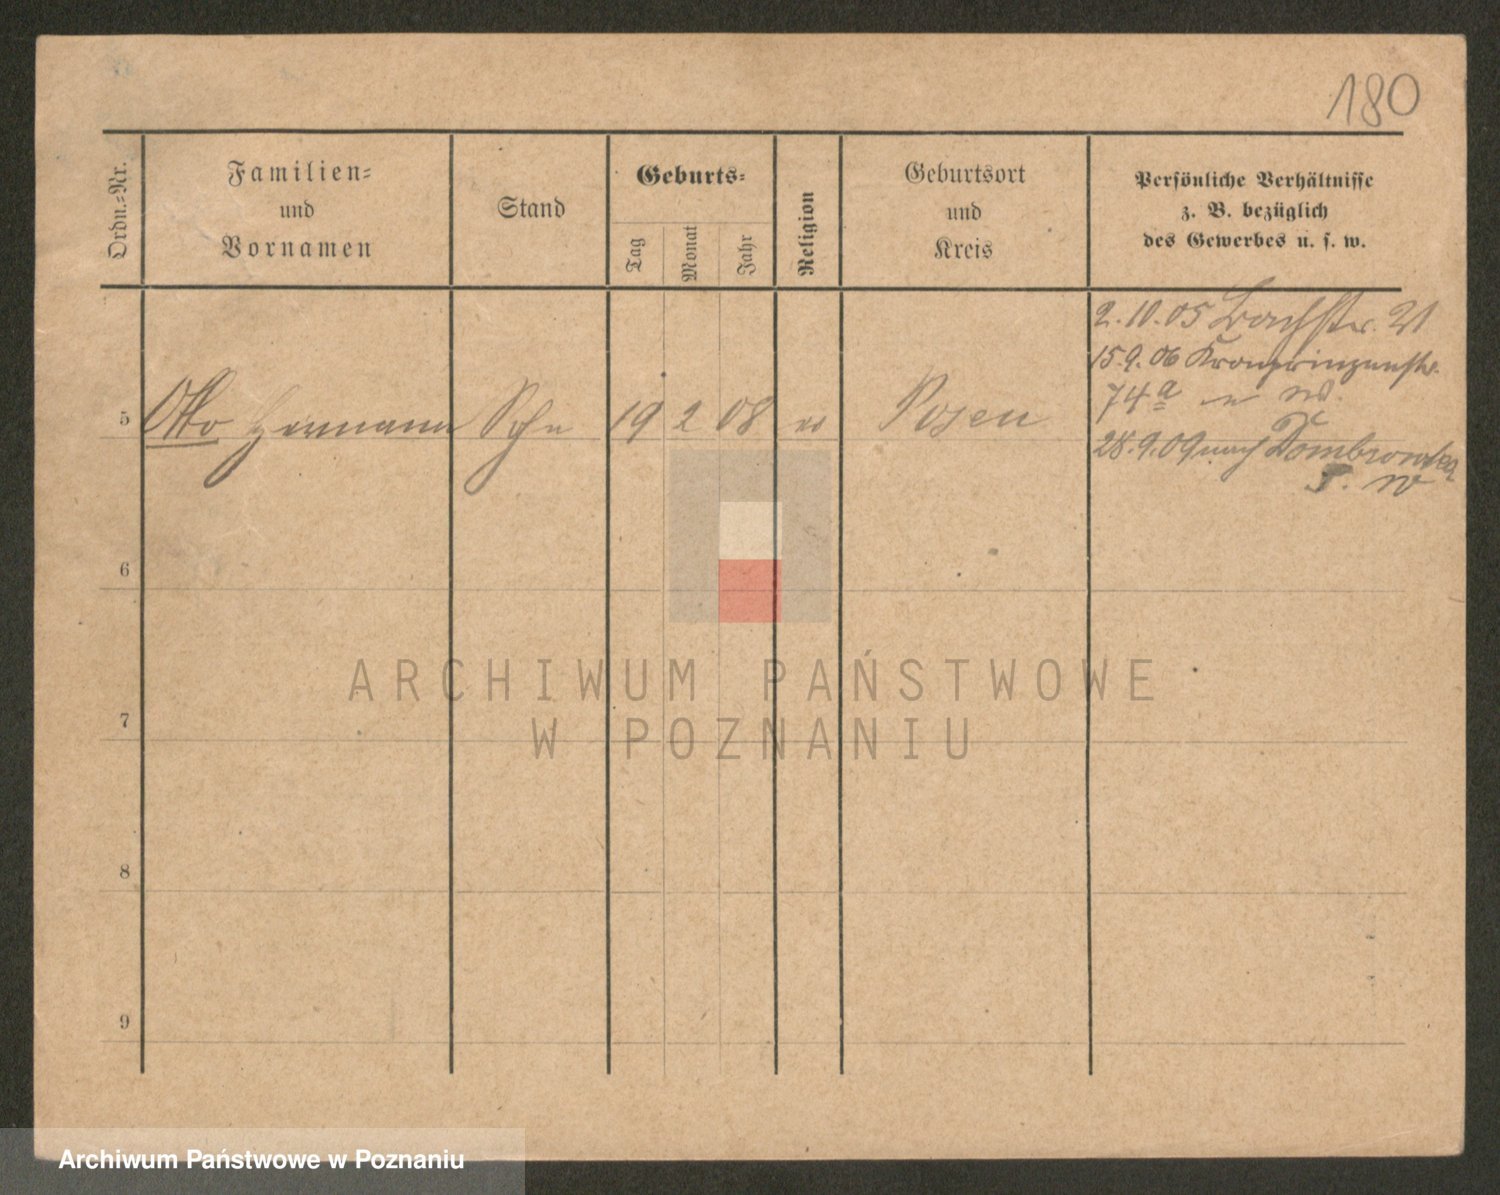 180
Ordn.=Nr.
Familien=
und
Vornamen
Stand
Geburts=
Tag
Monat
Jahr
Religion
Geburtsort
und
Kreis
Persönliche Verhältnisse
z. B. bezüglich
des Gewerbes u. s. w.
2.10.05 Bachstr. 21
15.9.06 Kronprinzenstr.
74a
5 Otto Hermann Sohn 19 2 08 Posen
28.9.09 nach Dombrowka
6
7
8
9
ARCHIWUM PAŃSTWOWE
W POZNANIU
Archiwum Państwowe w Poznaniu